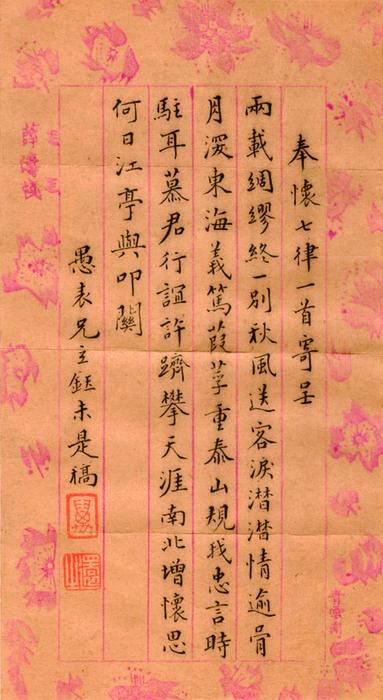 奉懷七律一首寄呈
兩載綢繆終一別秋風送客淚潸潸情逾骨
月深東海義篤葭莩重泰山規我忠言時
駐耳慕君行誼許躋攀天涯南北增懷思
何日江亭與叩關
愚表兄立鉦未是稿